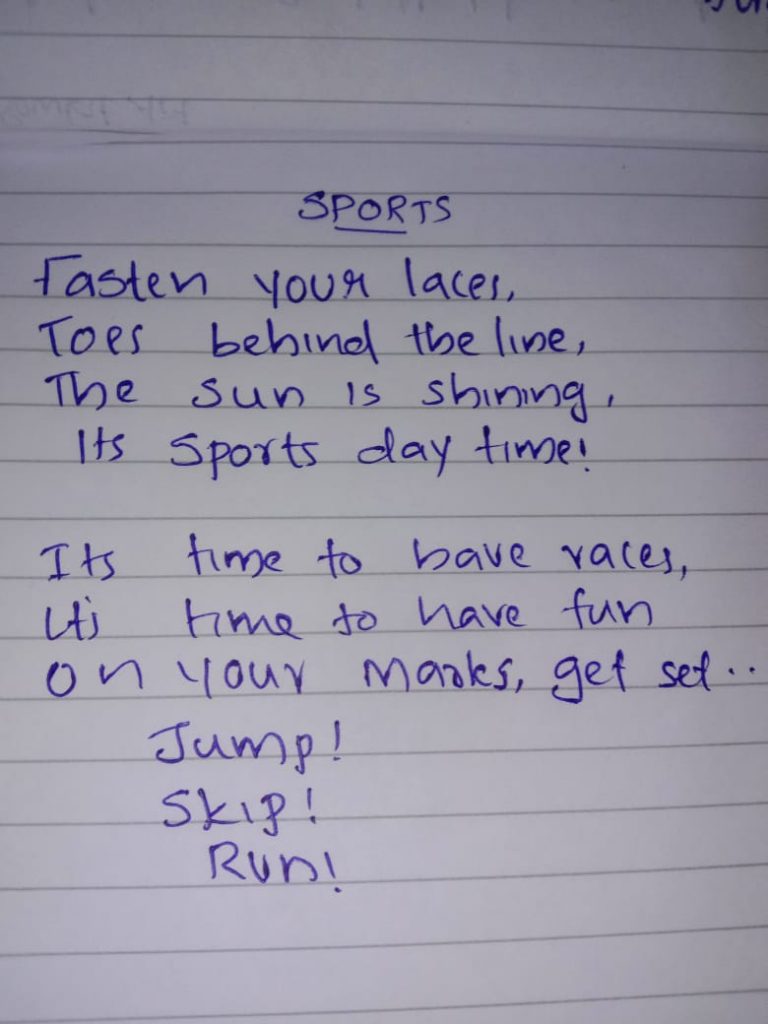 SPORTS
Fasten your laces,
Toes behind the line,
The sun is shining,
Its Sports day time!
Its time to have races,
Its time to have fun
On your Marks, get set..
Jump!
Skip!
Run!